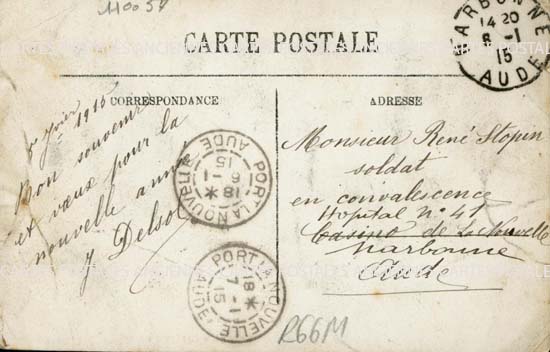 110057
CARTE POSTALE
NARBONNE
14 20
8 -1
15
AUDE
CORRESPONDANCE
ADRESSE
1915
Bon souvenir
et vœux pour la
nouvelle année
J Delsol
PORT LA NOUVELLE
18 *
6 - 1
15
AUDE
PORT LA NOUVELLE
18 *
7 - 1
15
AUDE
Monsieur René Stopin
soldat
en convalescence
Hopital N° 41
Casino de La Nouvelle
Narbonne
Aude
R66M